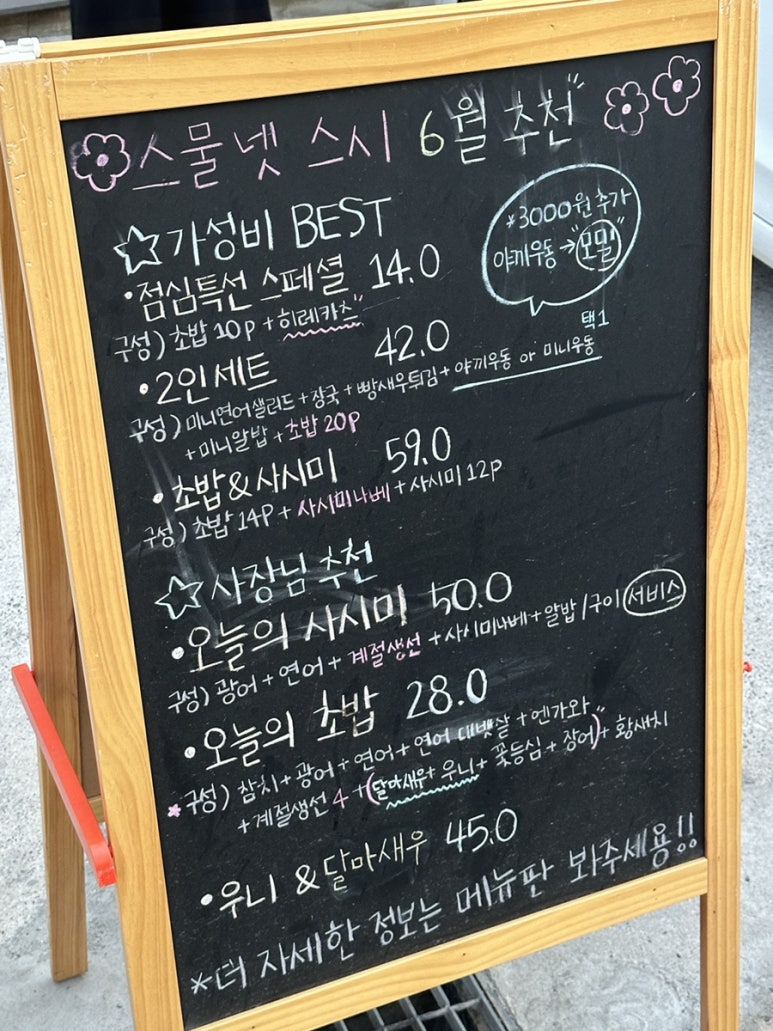 스물넷 스시 6월 추천"
☆가성비 BEST
*3000원 추가
야끼우동→"모밀"
·점심특선 스페셜 14.0
구성) 초밥 10p + 히레카츠"
·2인세트 42.0
택1
구성) 미니연어샐러드 + 장국 + 빵새우튀김 + 야끼우동 or 미니우동
+ 미니알밥 + 초밥 20p
·초밥&사시미 59.0
구성) 초밥 14P + 사시미나베 + 사시미 12p
☆사장님 추천
·오늘의 사시미 50.0
구성) 광어 + 연어 + 계절생선 + 사시미나베 + 알밥/구이 서비스
·오늘의 초밥 28.0
*구성) 참치 + 광어 + 연어 + 연어 대뱃살 + 엔가와
+ 계절생선 4 + (달마새우 + 우니 + 꽃등심 + 장어)" + 황새치
·우니 & 달마새우 45.0
*더 자세한 정보는 메뉴판 봐주세용!!